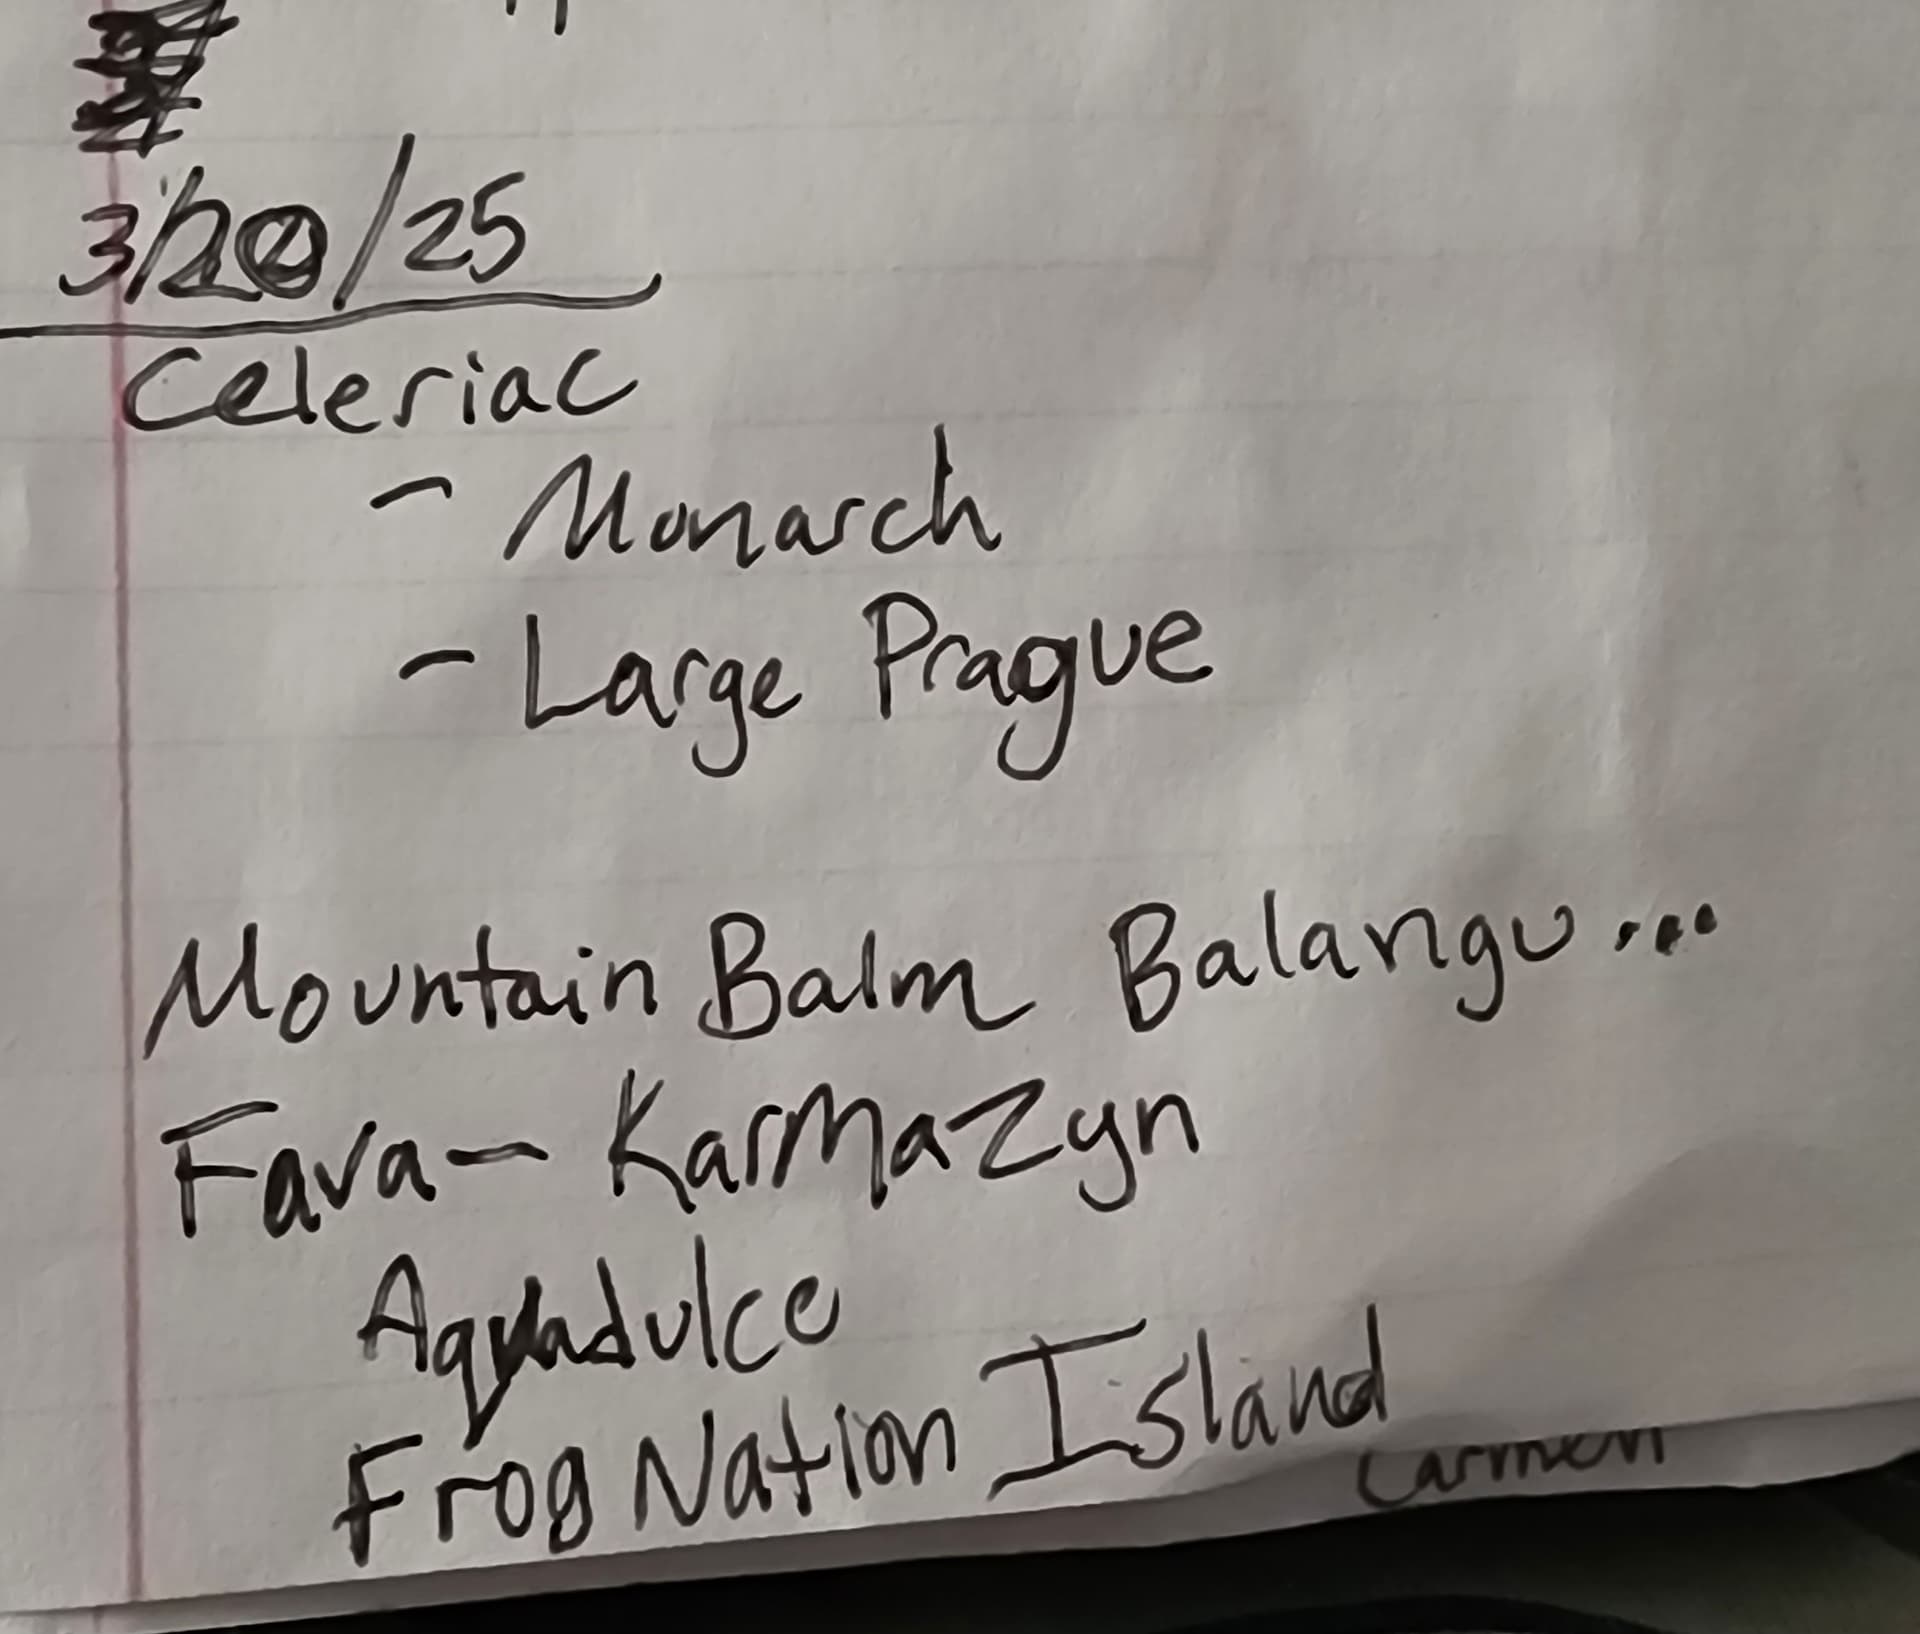 /25
Celeriac
- Monarch
- Large Prague
Mountain Balm Balangu...
Fava - Karmazyn
Aquadulce
Frog Nation Island
Carmen